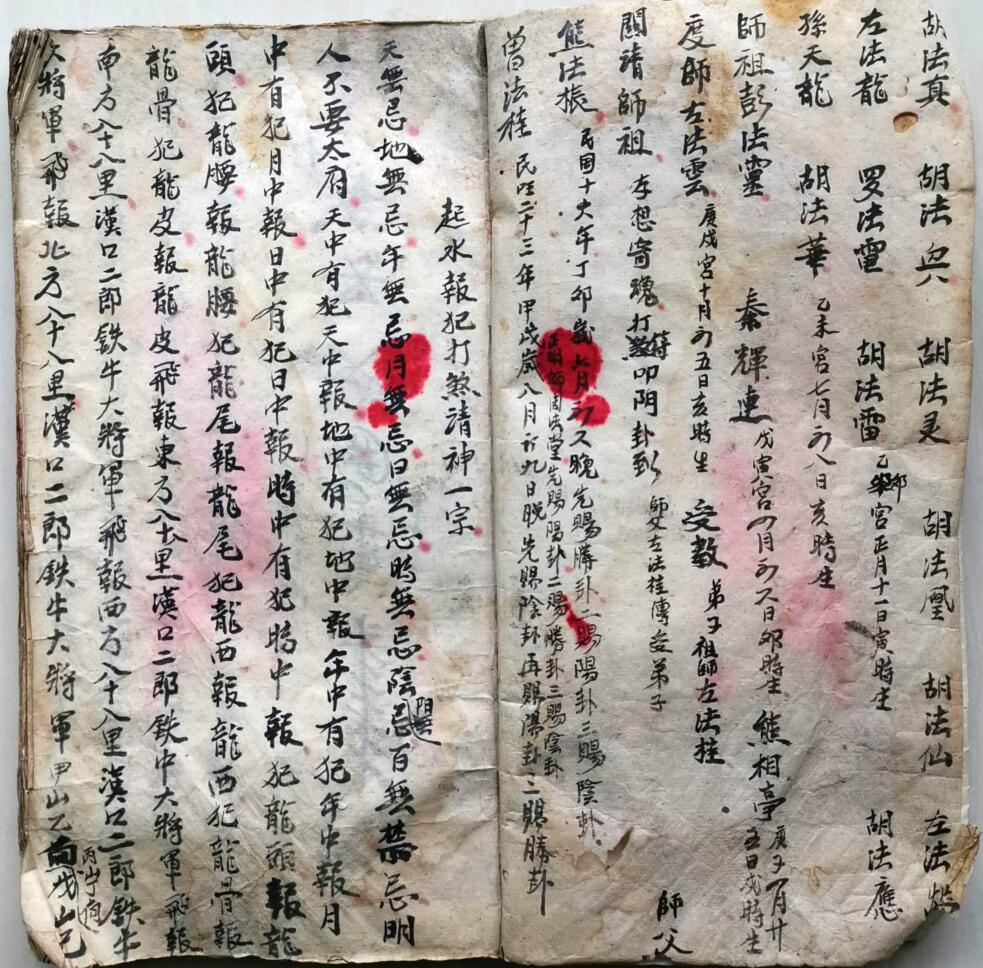 胡法真 胡法兴 胡法灵 胡法凰 胡法仙 左法灿
左法龍 罗法雷 胡法雷 乙卯宮正月十一日寅時生 胡法應
孫天龍 胡法華 乙未宮七月初八日亥時生
師祖彭法靈 秦輝連 戊寅宮四月初又日卯時生 熊相亭 庚子 月廿五日戌時生
度師左法雲 庚戌宮十月初五日亥時生 受教 弟子祖師左法桂
関請師祖 存想寄魂打煞符叩阴卦 師父左法桂傳受弟子 師父
熊法振 民国十六年丁卯歲七月初又晚先賜勝卦一賜陽卦三賜陰卦
正明師周法堂先賜陽卦二賜勝卦三賜陰卦
曾法桂 民囯二十三年甲戌歲八月初九日晚先賜陰卦再賜陽卦二賜勝卦
起水報犯打煞請神一宗
天無忌地無忌年無忌月無忌日無忌時無忌陰陽無忌百無禁忌明
人不要太府天中有犯天中報地中有犯地中報年中有犯年中報月
中有犯月中報日中有犯日中報時中有犯時中報犯龍頭報龍
頭犯龍腰報龍腰犯龍尾報龍尾犯龍西報龍西犯龍骨報
龍骨犯龍皮報龍皮飛報東方八十八里漢口二郎铁中大將軍飛報
南方八十八里漢口二郎铁牛大將軍飛報西方八十八里漢口二郎铁牛
大將軍飛報北方八十八里漢口二郎铁牛大將軍甲山乙向丙山丁向戊山己